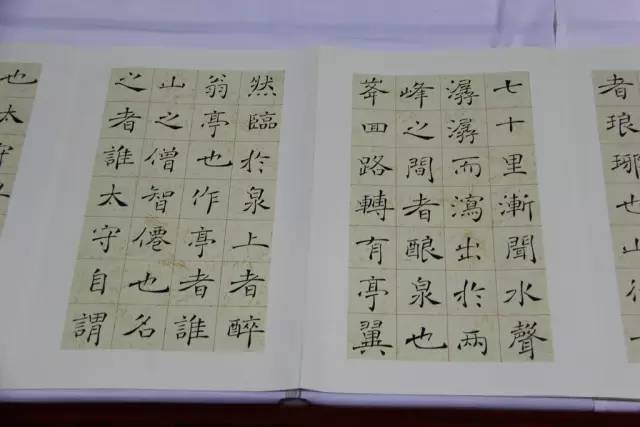 者琅琊也山
七十里漸聞水聲
潺潺而瀉出於兩
峰之間者酿泉也
峯回路轉有亭翼
然臨於泉上者醉
翁亭也作亭者誰
山之僧智僊也名
之者誰太守自謂
也太守